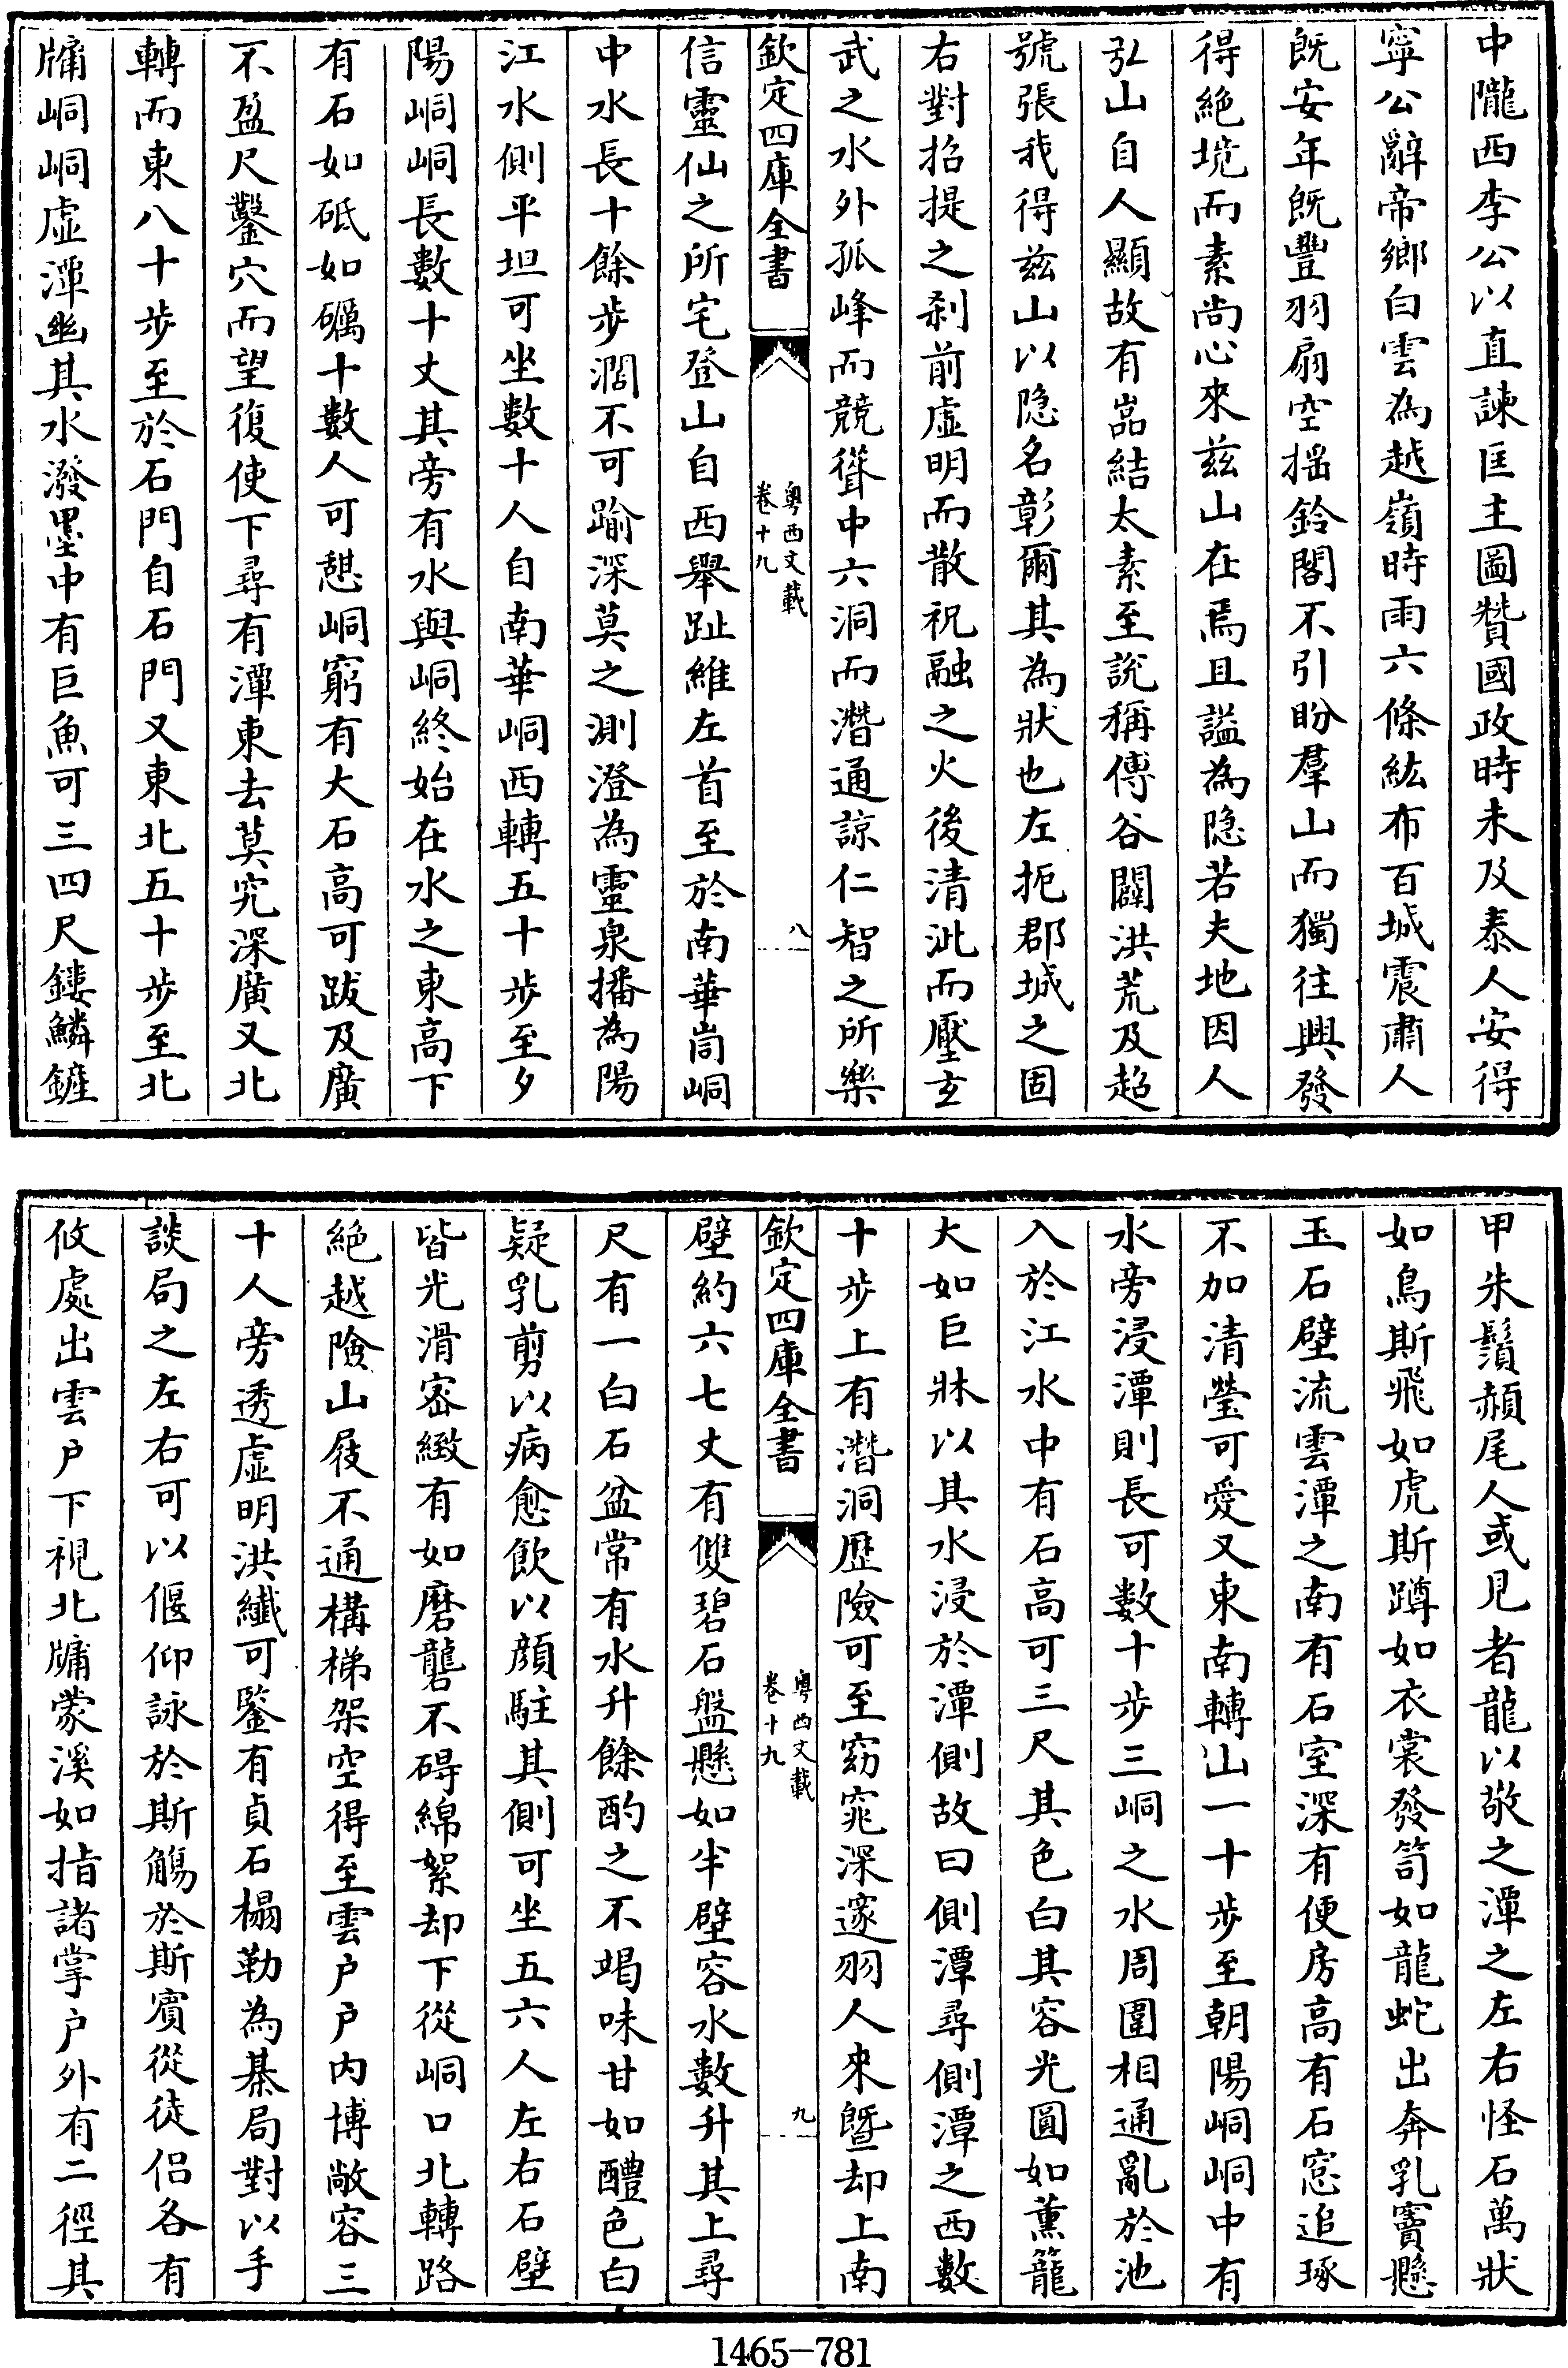 中隴西李公以直諫匡主圖贊國政時未及泰人安得
寧公辭帝鄉白雲為越嶺時雨六條紘布百城震肅人
既安年既豐羽扇空揺鈴閣不引盼羣山而獨往興發
得絶境而素尚心來兹山在焉且謚為隐若夫地因人
弘山自人顯故有嵓結太素至説稱傅谷闢洪荒及超
號張我得兹山以隐名彰爾其為狀也左扼郡城之固
右對招提之刹前虚明而散祝融之火後清泚而壓玄
武之水外孤峰而競聳中六洞而潛通諒仁智之所樂
欽定四庫全書
粤西文載
卷十九
八
信靈仙之所宅登山自西舉趾維左首至於南華崗峒
中水長十餘步濶不可踰深莫之測澄為靈泉播為陽
江水側平坦可坐數十人自南華峒西轉五十步至夕
陽峒峒長數十丈其旁有水與峒終始在水之東高下
有石如砥如礪十數人可憇峒窮有大石高可跋及廣
不盈尺鑿穴而望復使下尋有潭東去莫究深廣又北
轉而東八十步至於石門自石門又東北五十步至北
牗峒峒虚潭幽其水潑墨中有巨魚可三四尺鏤鱗鏟
甲朱鬚頳尾人或見者龍以敬之潭之左右怪石萬狀
如鳥斯飛如虎斯蹲如衣裳發笥如龍蛇出奔乳竇懸
玉石壁流雲潭之南有石室深有便房高有石窓追琢
不加清瑩可愛又東南轉山一十步至朝陽峒峒中有
水旁浸潭則長可數十步三峒之水周圍相通亂於池
入於江水中有石高可三尺其色白其容光圓如薰籠
大如巨牀以其水浸於潭側故曰側潭尋側潭之西數
十步上有潛洞歴險可至窈窕深邃羽人來曁却上南
欽定四庫全書
粤西文載
卷十九
九
壁約六七丈有雙碧石盤懸如半壁容水數升其上尋
尺有一白石盆常有水升餘酌之不竭味甘如醴色白
疑乳剪以病愈飲以顔駐其側可坐五六人左右石壁
皆光滑宻緻有如磨礲不碍綿絮却下從峒口北轉路
絶越險山屐不通構梯架空得至雲户户内博敞容三
十人旁透虚明洪纖可鑒有貞石榻勒為棊局對以手
談局之左右可以偃仰詠於斯觴於斯賓從徒侣各有
攸處出雲户下視北牗蒙溪如指諸掌户外有二徑其
1465—781